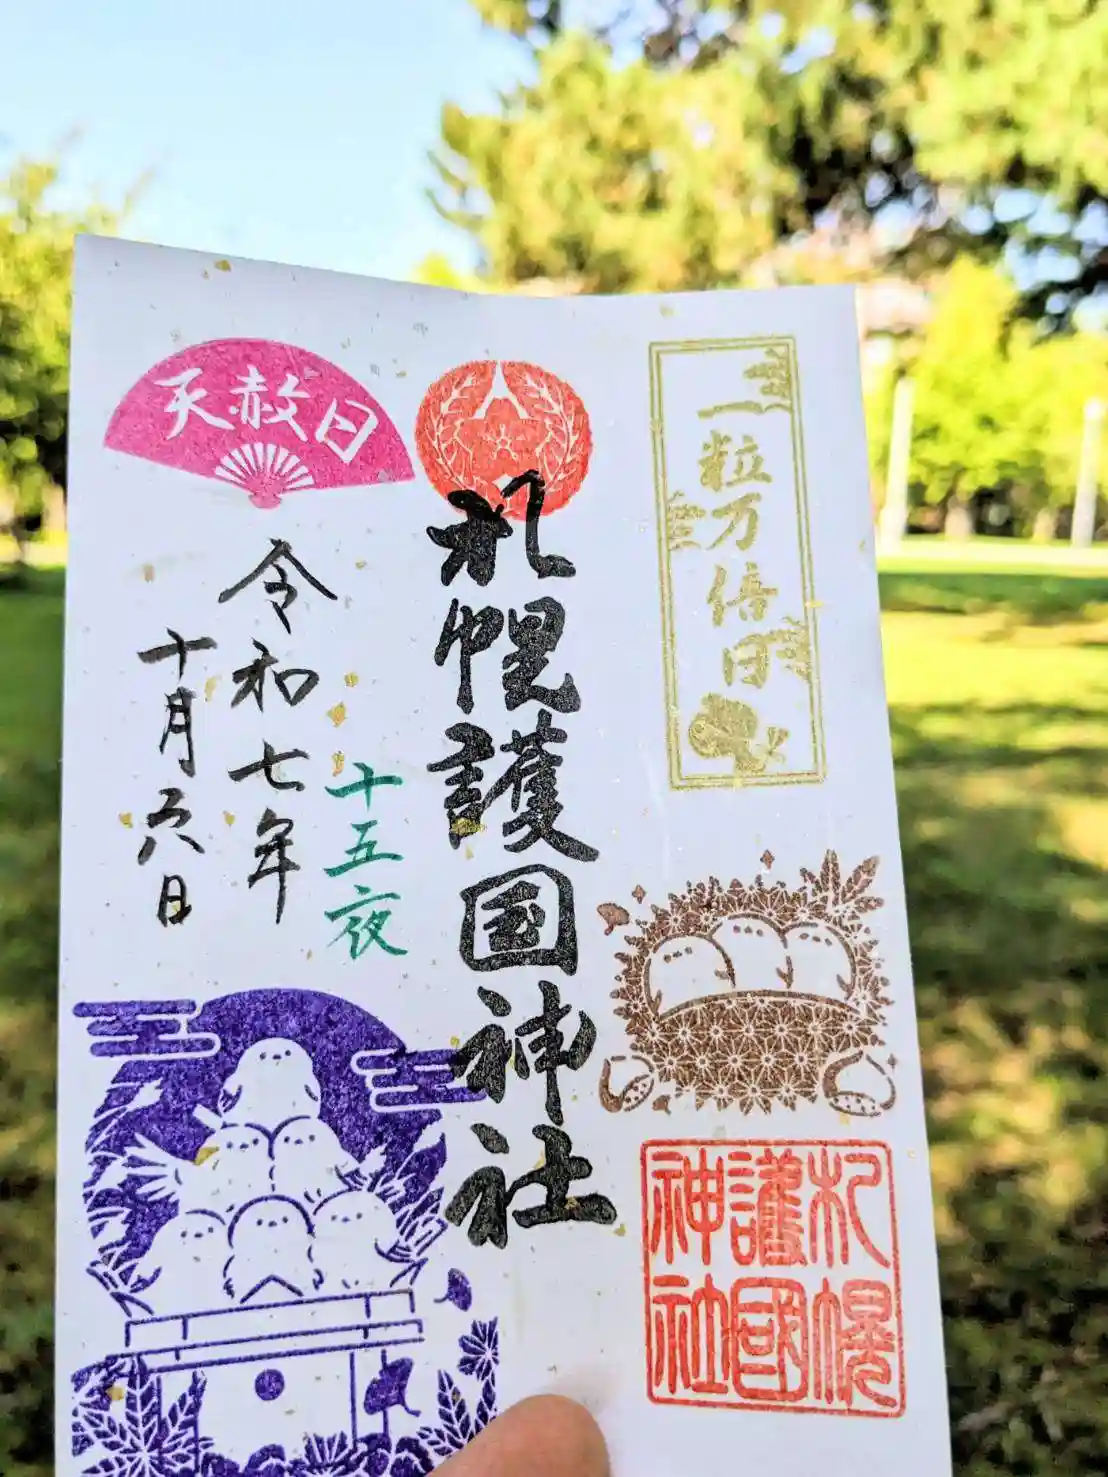 一粒万倍日
札幌護国神社
札幌
護國
神社
十五夜
天赦日
令和七年
十月六日